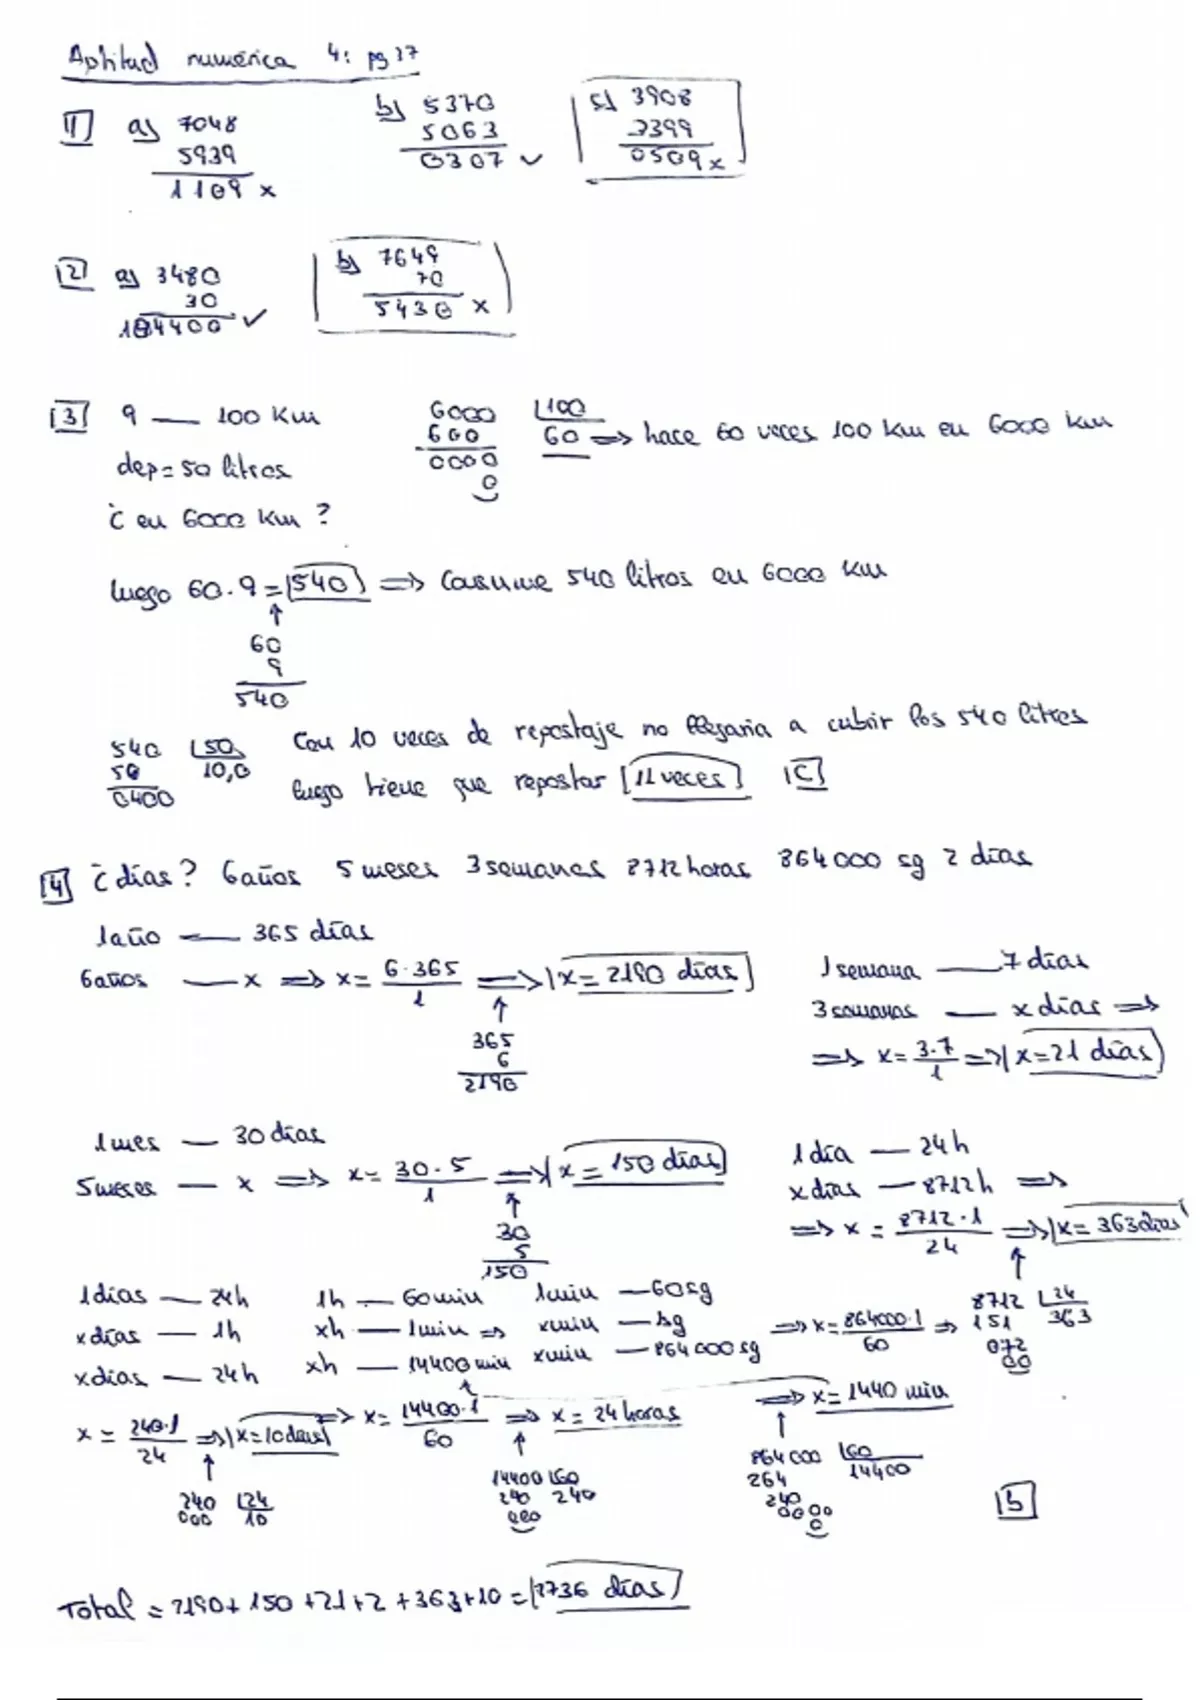 Aptitud numérica 4: pg 37
1 a) 7048
5939
1109 x
b) 5370
5063
0307 ✓
c) 3908
3399
0509 x
2 a) 3480
30
104400 ✓
b) 7649
70
5430 x
3 9 — 100 Km
dep = 50 litros
¿ en 6000 Km ?
6000 100
600 60 => hace 60 veces 100 Km en 6000 Km
0000
0
luego 60 · 9 = 540 => Consume 540 litros en 6000 Km
↑
60
9
540
540 50
50 10,0
0400
Con 10 veces de repostaje no llegaria a cubrir los 540 litros
luego tiene que repostar 11 veces C
4 ¿ días ? 6 años 5 meses 3 semanas 8712 horas 864000 sg 2 días
1 año — 365 días
6 años — x => x = 6·365 / 1 => x = 2190 días
↑
365
6
2190
1 semana — 7 días
3 semanas — x días =>
=> x = 3·7 / 1 => x = 21 días
1 mes — 30 días
5 meses — x => x = 30·5 / 1 => x = 150 días
↑
30
5
150
1 día — 24 h
x días — 8712 h =>
=> x = 8712·1 / 24 => x = 363 días
↑
8712 24
151 363
072
00
1 días — 24h 1h — 60 min 1 min — 60 sg
x días — 1h xh — 1 min => x min — 1 sg
x dias — 24h xh — 14400 min x min — 864000 sg => x = 864000·1 / 60 =>
=> x = 1440 min
↑
864000 60
264 14400
240
0000
0
=> x = 14400·1 / 60 => x = 24 horas
↑
14400 60
240 240
000
x = 240·1 / 24 => x = 10 días
↑
240 24
000 10
b
Total = 2190 + 150 + 21 + 2 + 363 + 10 = 2736 días